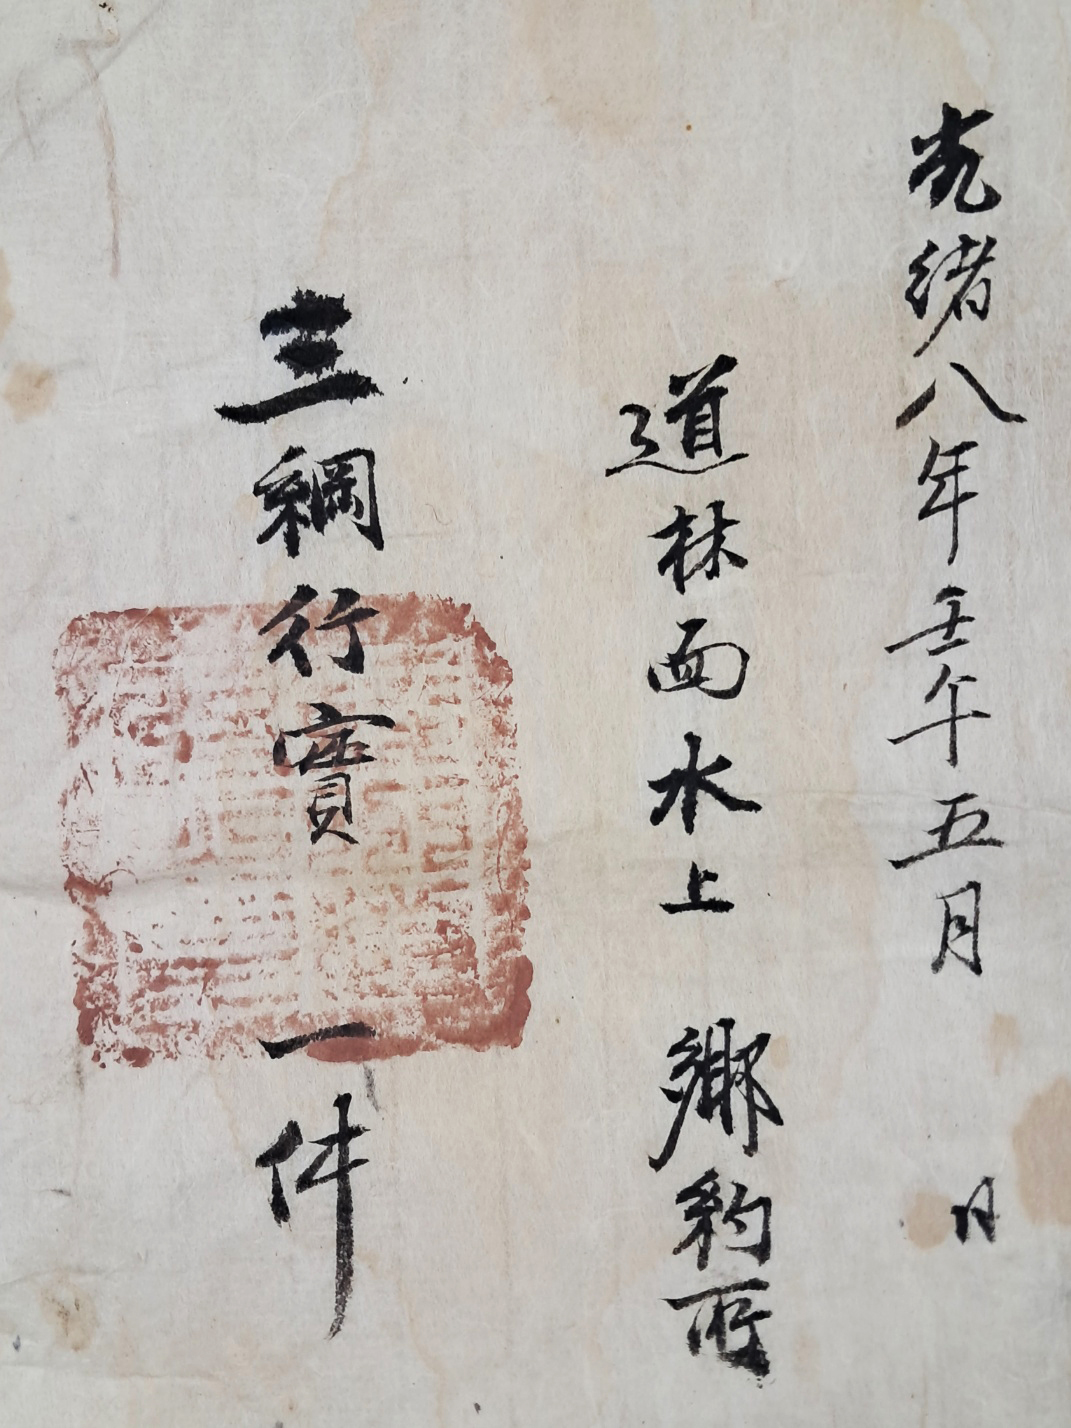 光緒八年壬午五月 日
道林面水上 鄕約所
三綱行實 一件